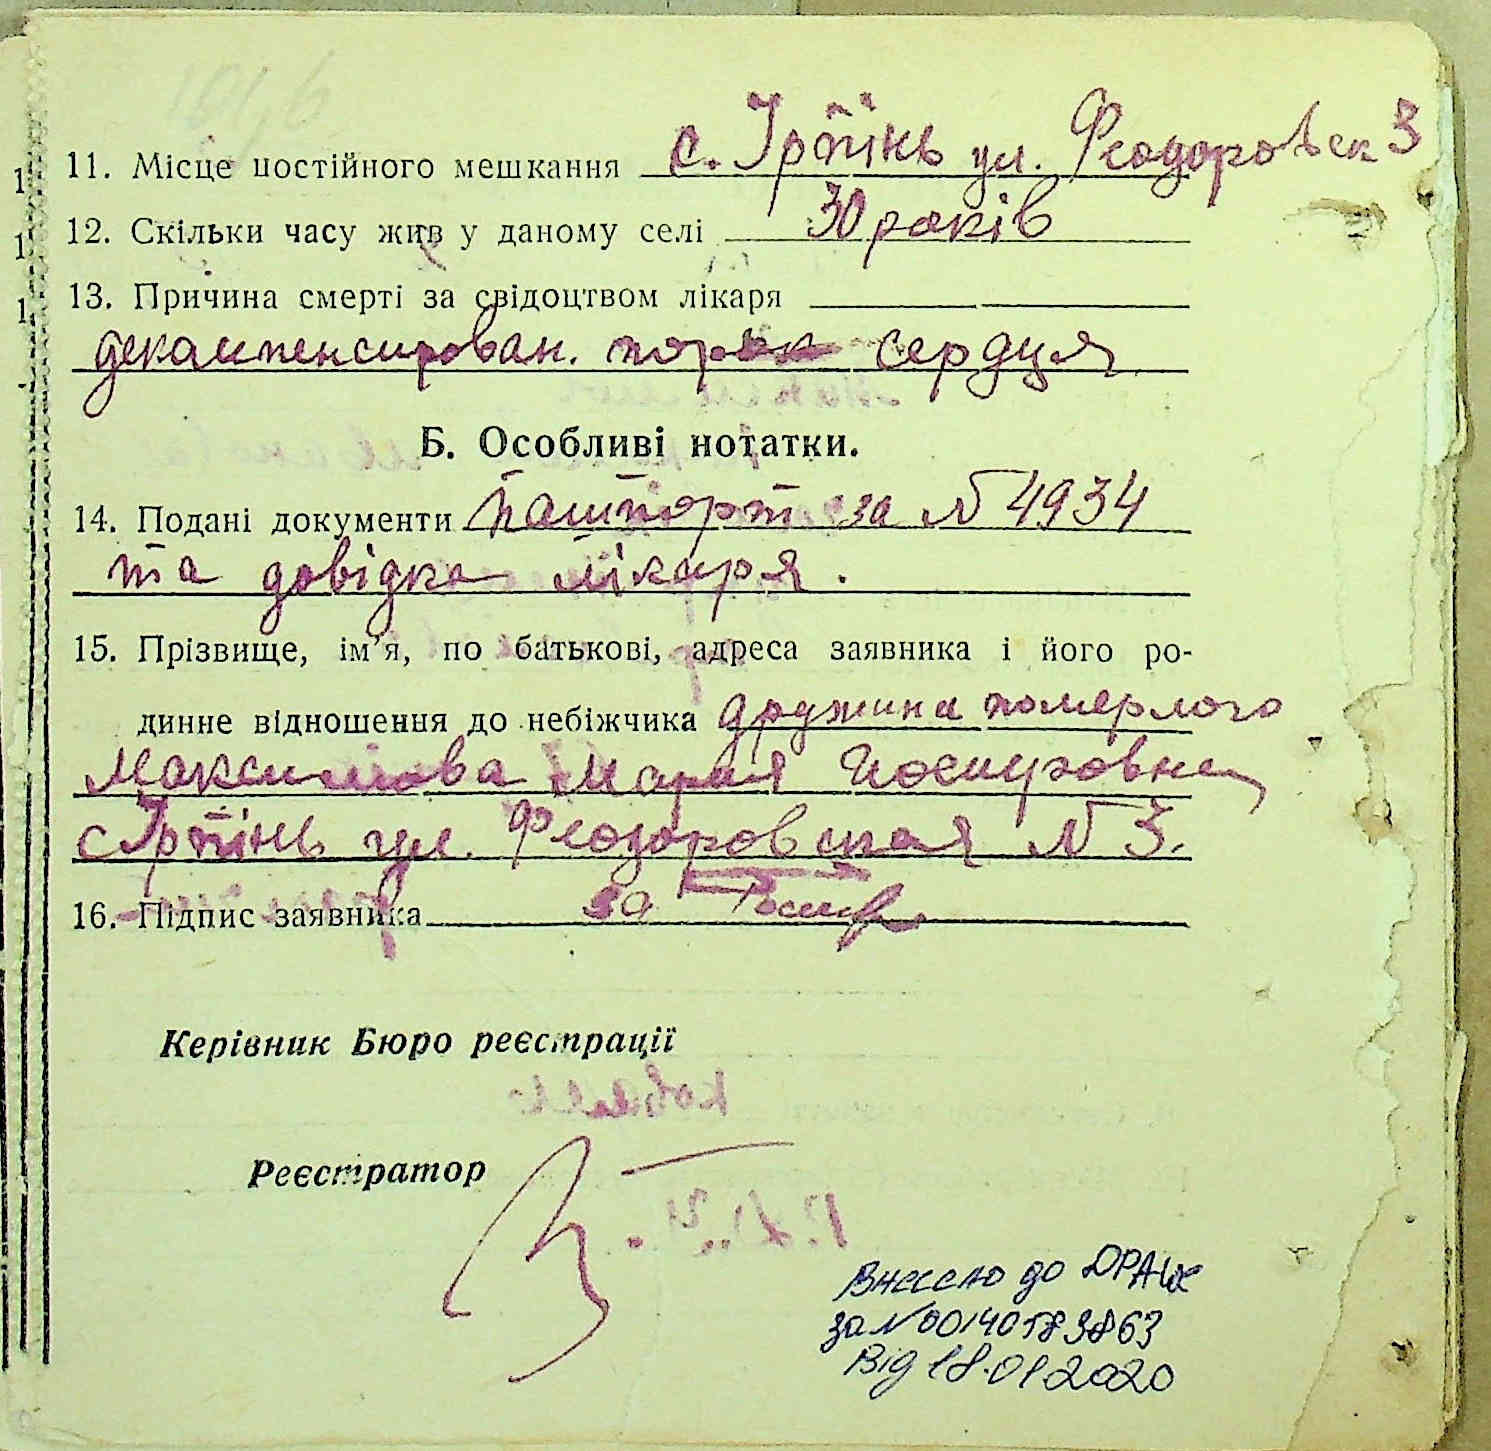 11. Місце постійного мешкання с. Ірпінь ул. Феодоровск 3
12. Скільки часу жив у даному селі 30 років
13. Причина смерті за свідоцтвом лікаря
декампенсирован. порок сердця
Б. Особливі нотатки.
14. Подані документи пашпорт за N 4934
та довідка лікаря.
15. Прізвище, ім'я, по батькові, адреса заявника і його ро-
динне відношення до небіжчика дружина померлого
Максимова Мария Иосиповна
с Ірпінь ул. Феодоровская N 3.
16. Підпис заявника за
Керівник Бюро реєстрації
Реєстратор
Внесено до ДРАЦС
за N 00140583863
Від 18.01.2020